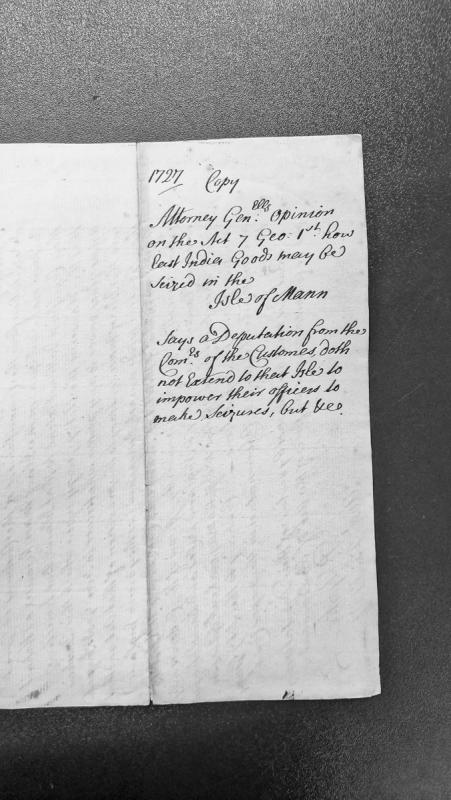 1727 Copy
Attorney Gen:^ells Opinion
on the Act 7 Geo: 1^st: how
East India Goods may be
Seized in the
Isle of Mann
Says a Deputation from the
Com:^rs of the Customes, doth
not Extend to that Isle to
impower their officers to
make Seizures, but &c.